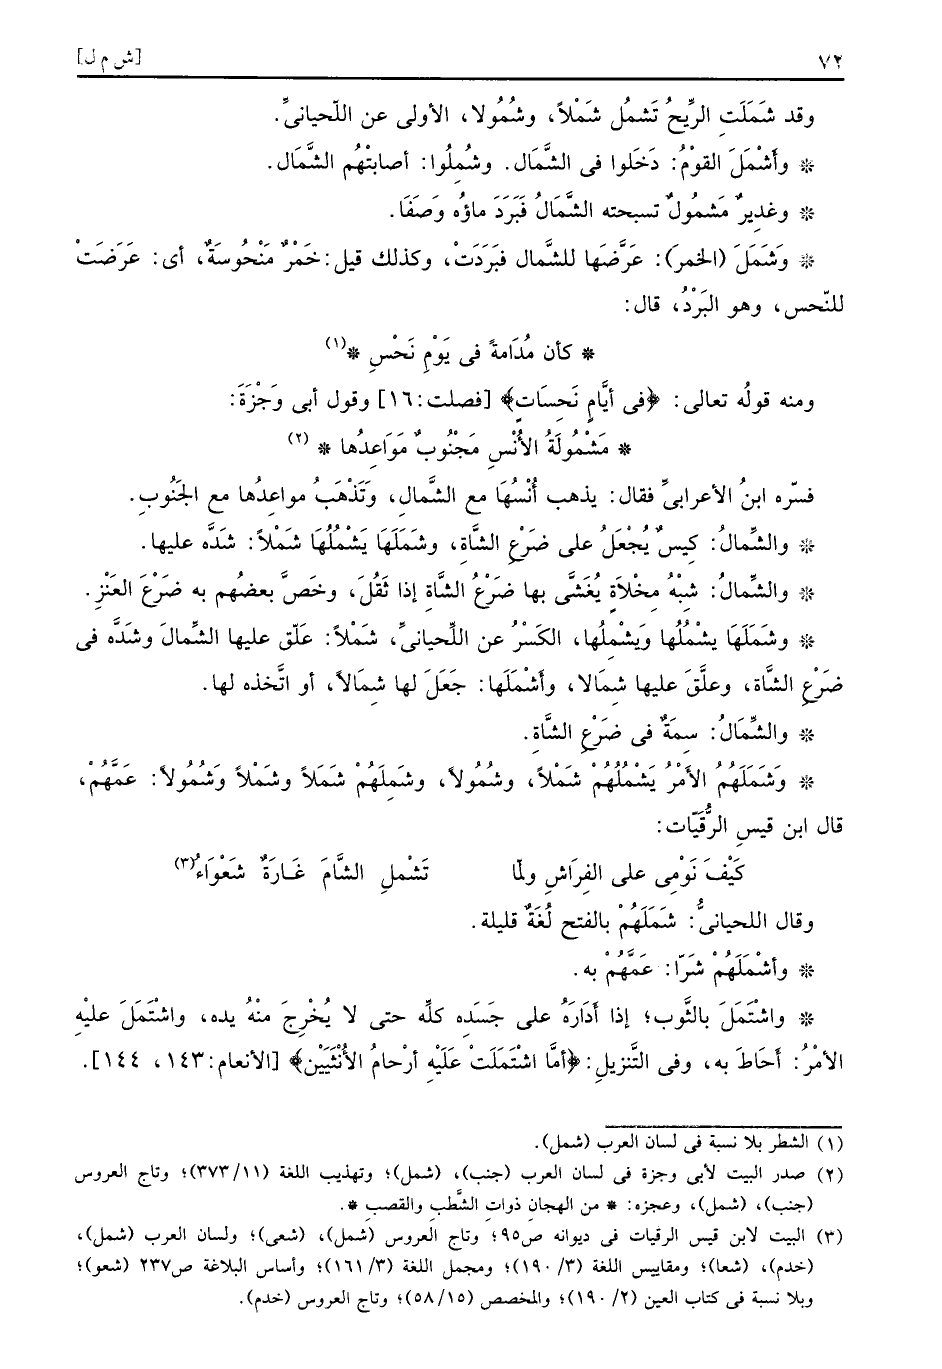 ٧٢
[ش م ل]
وقد شَمَلَتِ الرِّيحُ تَشمُل شَمْلاً، وشُمُولا، الأولى عن اللّحيانىِّ.
* وأَشْمَلَ القوْمُ: دَخَلوا فى الشَّمَال. وشُمِلُوا: أصابتْهُم الشَّمَال.
* وغديرٌ مَشمُولٌ تسبحته الشَّمَالُ فَبَرَدَ ماؤُه وَصَفَا.
* وَشَمَلَ (الخمرَ): عَرَّضَها للشَّمال فبَرَدَتْ، وكذلك قيل: خَمْرٌ مَنْحُوسَةٌ، أى: عَرَضَتْ
للنّحس، وهو البَرْدُ، قال:
* كأن مُدَامةً فى يَوْمِ نَحْسِ *(١)
ومنه قولُه تعالى: ﴿فى أيَّامٍ نَحِسَاتٍ﴾ [فصلت: ١٦] وقول أبى وَجْزَةَ:
* مَشْمُولَةُ الأُنْسِ مَجْنُوبٌ مَوَاعِدُها * (٢)
فسّره ابنُ الأعرابىِّ فقال: يذهب أُنْسُهَا مع الشَّمالِ، وَتَذْهَبُ مواعدُها مع الجَنُوبِ.
* والشِّمالُ: كيسٌ يُجْعَلُ على ضَرْعِ الشَّاةِ، وشَمَلَهَا يَشْمُلُهَا شَملاً: شَدَّه عليها.
* والشِّمالُ: شبْهُ مخْلاَةٍ يُغَشَّى بها ضَرْعُ الشَّاةِ إذا ثَقُلَ، وخَصَّ بعضُهم به ضَرْعَ العَنْزِ.
* وشَمَلَهَا يشْمُلُها ويَشْمِلُها، الكَسْرُ عن اللِّحيانىِّ، شَمْلاً: عَلّق عليها الشِّمالَ وشَدَّه فى
ضَرْعِ الشَّاة، وعلَّقَ عليها شِمَالا، وأشْمَلَها: جَعَلَ لها شِمَالاً، أو اتَّخذه لها.
* والشِّمَالُ: سِمَةٌ فى ضَرْعِ الشَّاةِ.
* وَشَمَلَهُمُ الأمْرُ يَشْمُلُهُمْ شَمْلاً، وشُمُولاً، وشَمِلَهُمْ شَمَلاً وشَمْلاً وَشُمُولاً: عَمَّهُمْ،
قال ابن قيسِ الرُّقَيّات:
كَيْفَ نَوْمِى على الفِرَاشِ ولمّا تَشْملِ الشَّامَ غَارَةٌ شَعْوَاءُ(٣)
وقال اللحيانىُّ: شَمَلَهُمْ بالفتح لُغَةٌ قليلة.
* وأشْمَلَهُمْ شَرّا: عَمَّهُمْ به.
* واشْتَمَلَ بالثَّوب؛ إذا أَدَارَهُ على جَسَده كلِّه حتى لا يُخْرِجَ منْهُ يده، واشْتَمَلَ عليْهِ
الأمْرُ: أحَاطَ به، وفى التَّنزيلِ: ﴿أمَّا اشْتَمَلَتْ عَلَيْه أرْحامُ الأُنْثَيَيْنِ﴾ [الأنعام: ١٤٣، ١٤٤].
(١) الشطر بلا نسبة فى لسان العرب (شمل).
(٢) صدر البيت لأبى وجزة فى لسان العرب (جنب)، (شمل)؛ وتهذيب اللغة (٣٧٣/١١)؛ وتاج العروس
(جنب)، (شمل)، وعجزه: * من الهجان ذواتِ الشَّطبِ والقصب *.
(٣) البيت لابن قيس الرقيات فى ديوانه ص٩٥؛ وتاج العروس (شمل)، (شعى)؛ ولسان العرب (شمل)،
(خدم)، (شعا)؛ ومقاييس اللغة (١٩٠/٣)؛ ومجمل اللغة (١٦١/٣)؛ وأساس البلاغة ص٢٣٧ (شعو)؛
وبلا نسبة فى كتاب العين (١٩٠/٢)؛ والمخصص (٥٨/١٥)؛ وتاج العروس (خدم).